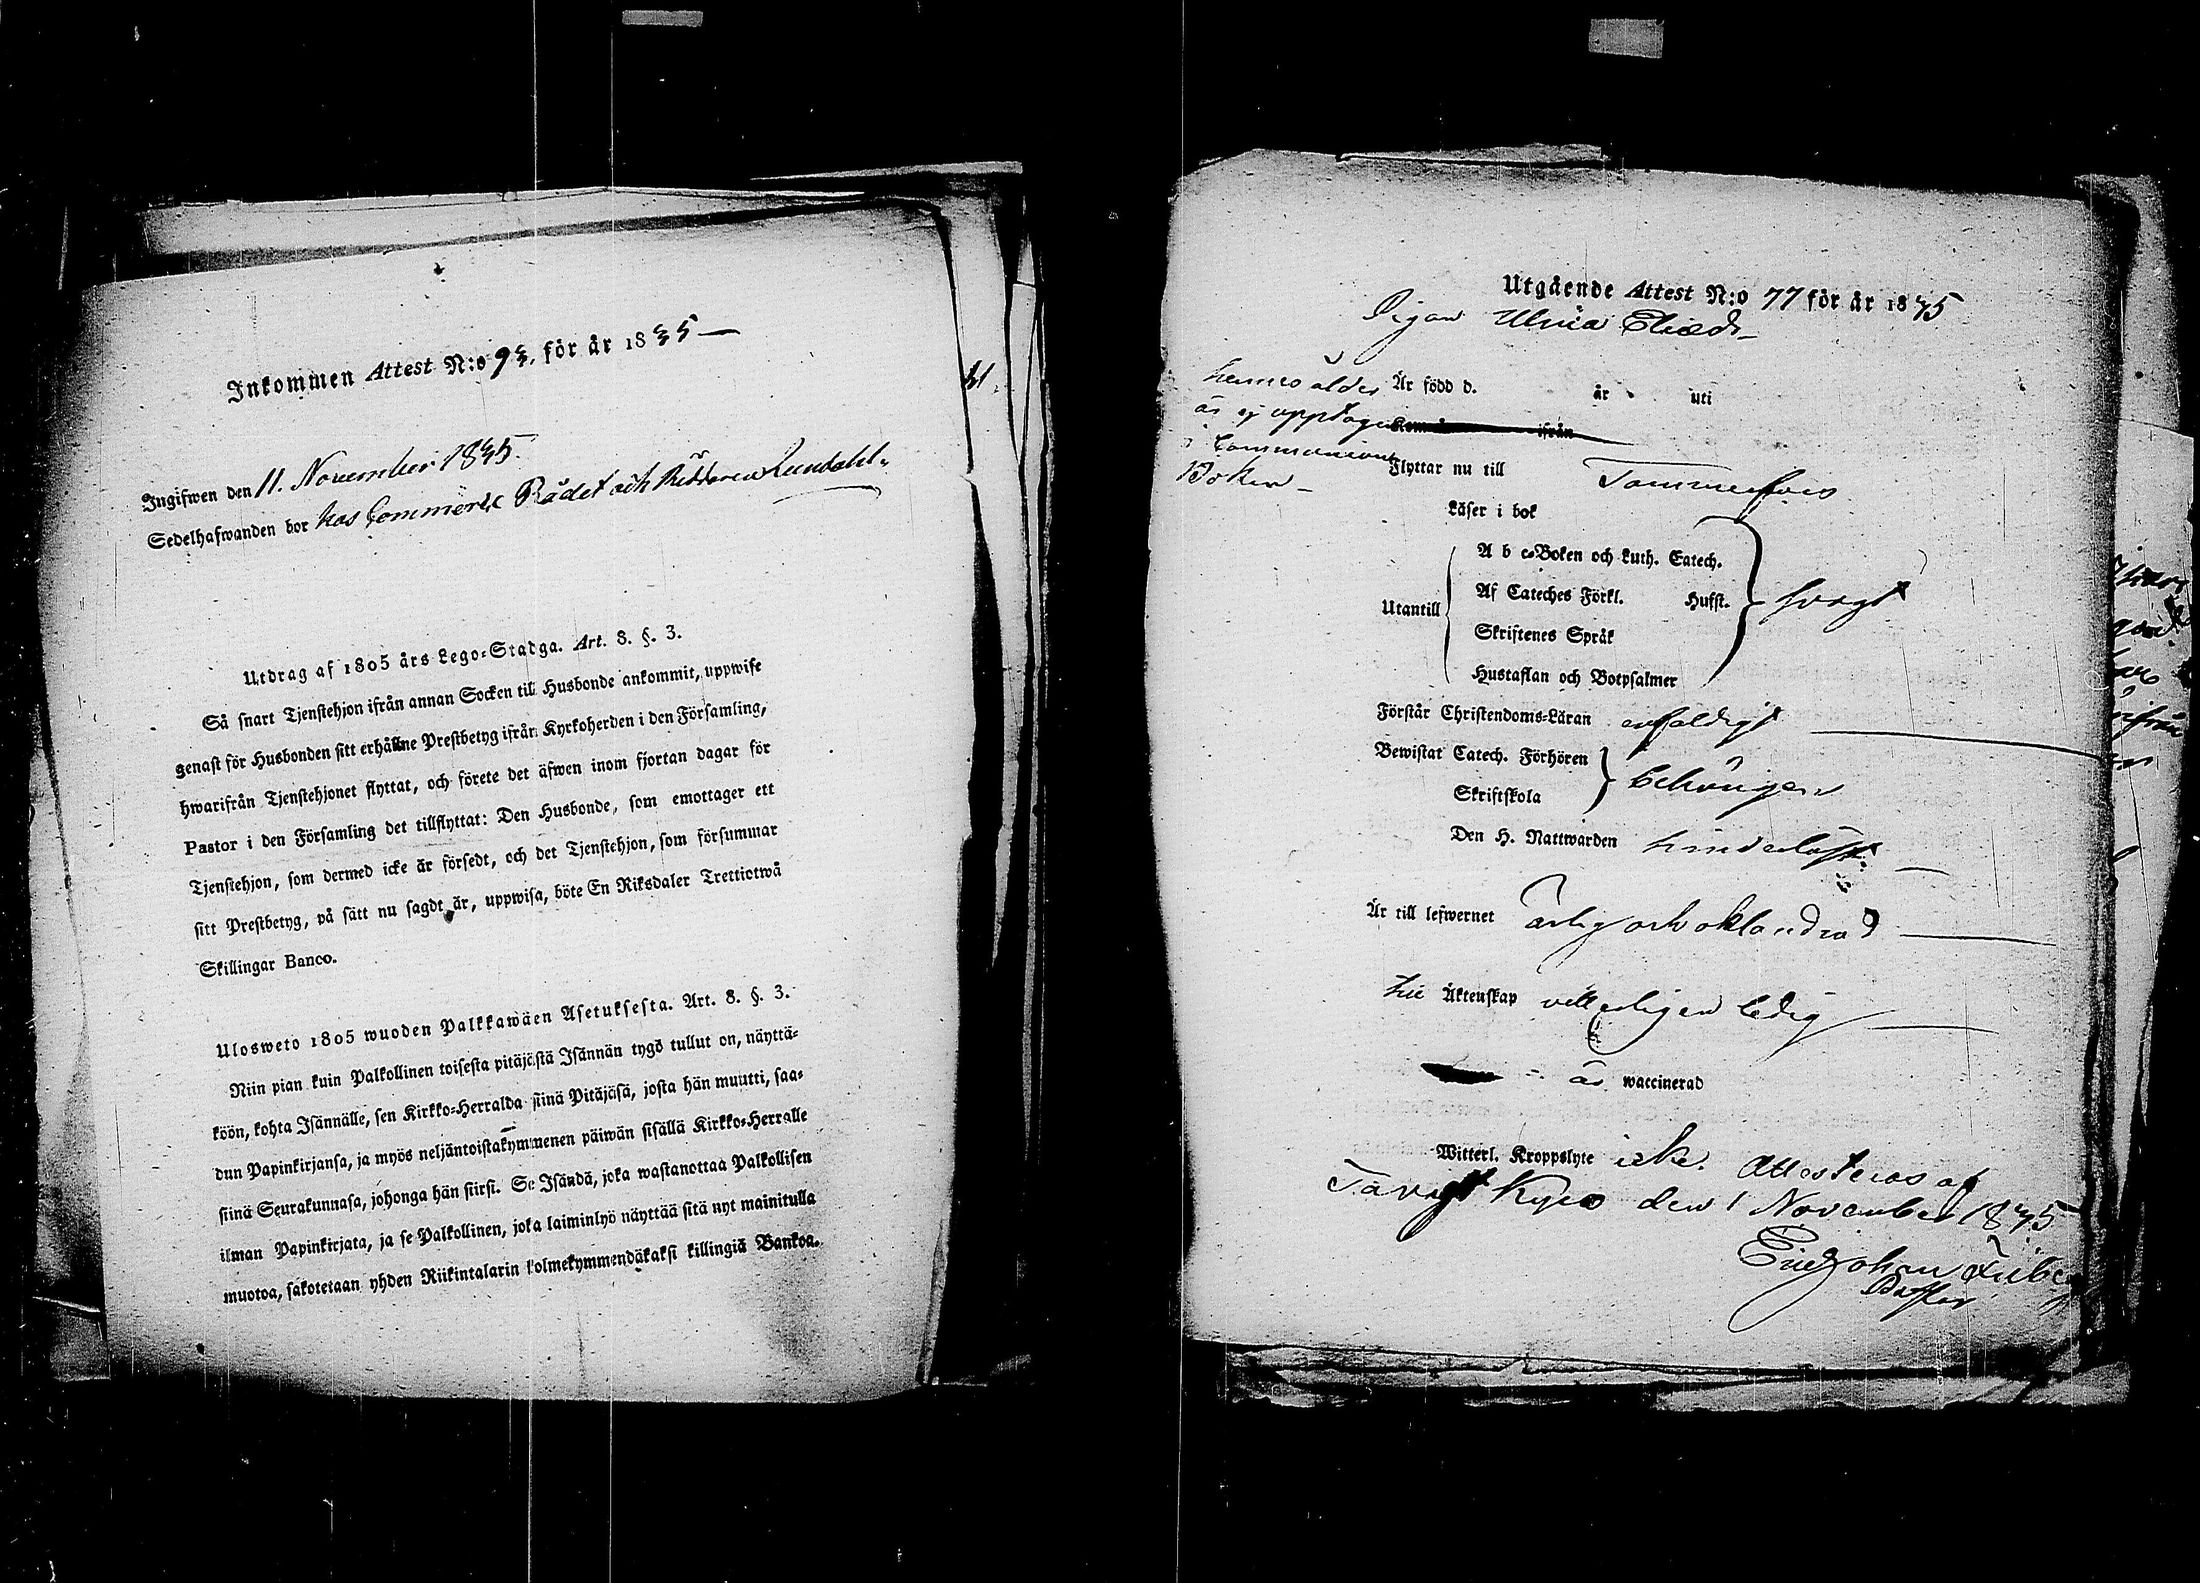 Inkommen Attest N:o 93, för år 1835
Ingifwen den 11. November 1835.
Sedelhafwanden bor hos Commerce Rådet och Riddaren Lundahl.
Utdrag af 1805 års Lego-Stadga. Art. 8. §. 3.
Så snart Tjenstehjon ifrån annan Socken till Husbonde ankommit, uppwise
genast för Husbonden sitt erhållne Prestbetyg ifrån Kyrkoherden i den Församling,
hwarifrån Tjenstehjonet flyttat, och förete det äfwen inom fjortan dagar för
Pastor i den Församling det tillflyttat: Den Husbonde, som emottager ett
Tjenstehjon, som dermed icke är försedt, och det Tjenstehjon, som försummar
sitt Prestbetyg, på sätt nu sagdt är, uppwisa, böte En Riksdaler Trettiotwå
Skillingar Banco.
Ulosweto 1805 wuoden Palkkawäen Asetuksesta. Art. 8. §. 3.
Niin pian kuin Palkollinen toisesta pitäjästä Isännän tygö tullut on, näyttä-
köön, kohta Isännälle, sen Kirkko-Herralda siinä Pitäjäsä, josta hän muutti, saa-
dun Papinkirjansa, ja myös neljäntoistakymmenen päiwän sisällä Kirkko-Herralle
siinä Seurakunnasa, johonga hän siirsi. Se Isändä, joka wastanottaa Palkollisen
ilman Papinkirjata, ja se Palkollinen, joka laiminlyö näyttää sitä nyt mainitulla
muotoa, sakotetaan yhden Riikintalarin kolmekymmendäkaksi killingiä Bankoa.
Utgående Attest N:o 77 för år 1835
Pigan Ulrica Elisæd:
hennes ålder Är född d. år uti
är ej upptagen Kom ifrån
i Communion
Boken Flyttar nu till Tammerfors
Läser i bok
A b c-Boken och Luth. Catech.
Utantill Af Cateches Förkl. Husst. svagt
Skriftenes Språk
Hustaflan och Botpsalmer
Förstår Christendoms-Läran enfaldigt
Bewistat Catech. Förhören behörigen
Skriftskola
Den H. Nattwarden hinderlöst
Är till lefwernet ärlig och oklandrad
till Äktenskap vetterligen ledig
är waccinerad
Witterl. Kroppslyte icke. Attesteras af
Tavast Kyro den 1 November 1835
Eric Johan
Pastor